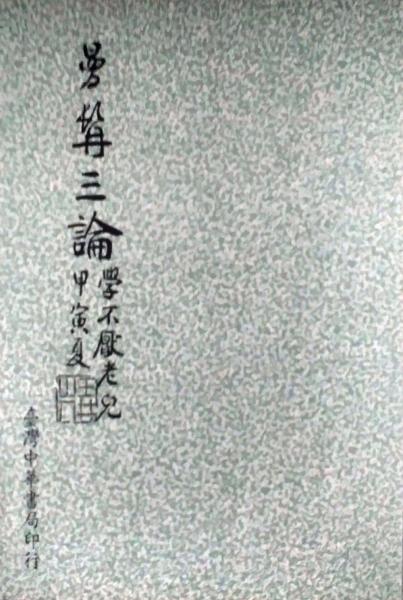 曼髯三論
學不厭老兒
甲寅夏
臺灣中華書局印行